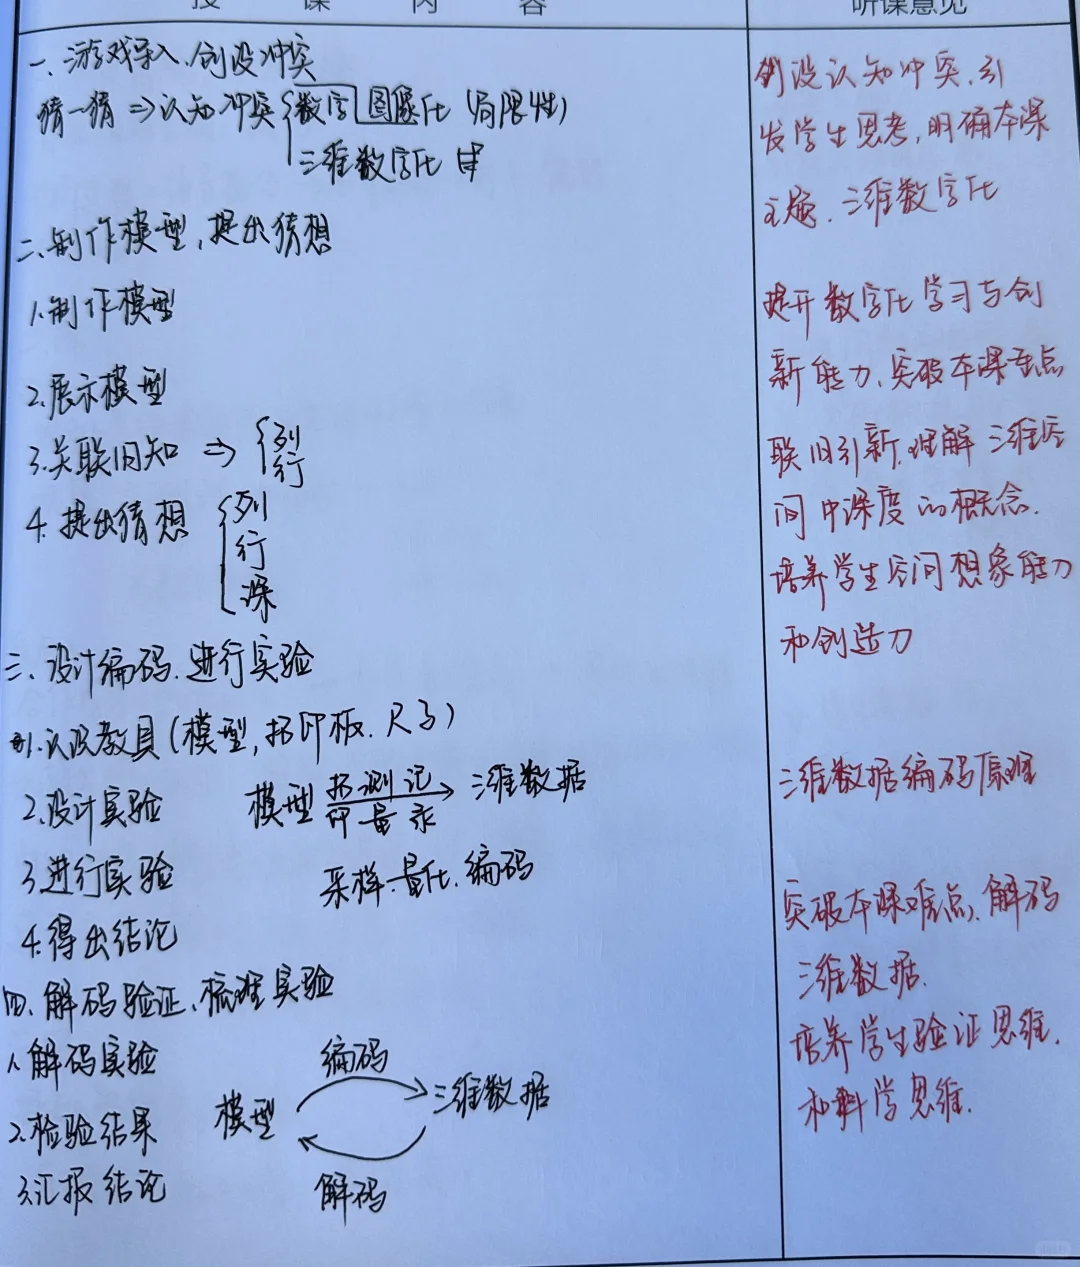 授 课 内 容
听课意见
一、游戏导入、创设冲突
猜一猜 ⇒ 认知冲突 { 数字图像化 (局限性)
三维数字化
二、制作模型,提出猜想
1.制作模型
2.展示模型
3.关联旧知 ⇒ { 列
行
4.提出猜想 { 列
行
深
三、设计编码.进行实验
1.认识教具(模型,拓印板.尺子)
2.设计实验 模型 拓测记 → 三维数据
印量录
3.进行实验 采样.量化.编码
4.得出结论
四、解码验证、梳理实验
1.解码实验 编码
模型 三维数据
2.检验结果
3.汇报结论 解码
创设认知冲突.引
发学生思考,明确本课
主题.三维数字化
提升数字化学习与创
新能力、突破本课重点
联旧引新.理解三维空
间中深度的概念.
培养学生空间想象能力
和创造力
三维数据编码原理
突破本课难点、解码
三维数据.
培养学生验证思维.
和科学思维.